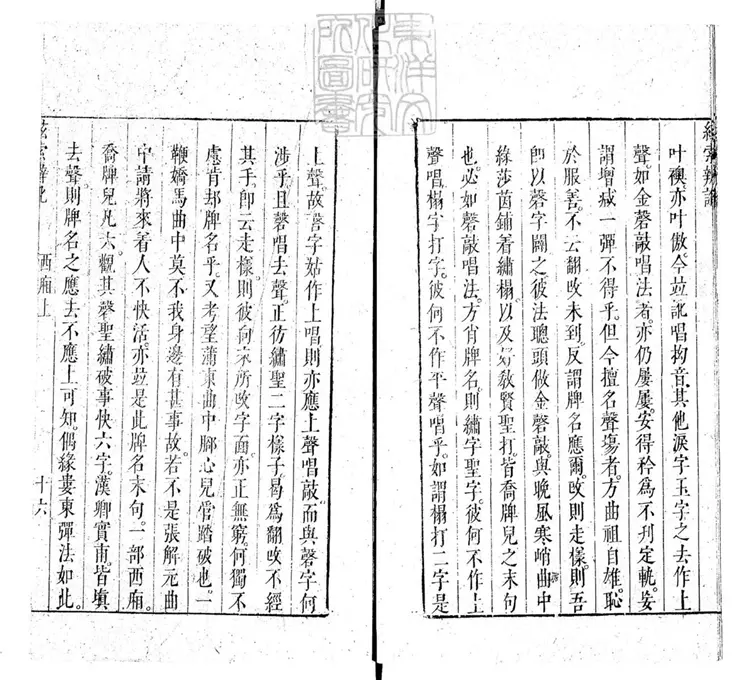 絃索辨訛
叶襖亦叶傲今竝訛唱拗音其他淚字玉字之去作上
聲如金磬敲唱法者亦仍屢屢安得矜爲不刋定軌妄
謂增減一彈不得乎但今擅名聲塲者方曲祖自雄恥
於服善不云翻改未到反謂牌名應爾改則走樣則吾
卽以磬字闢之彼法聰頭做金磬敲與晚風寒峭曲中
綠莎茵鋪着繡榻以及好敎賢聖打皆喬牌兒之末句
也必如磬敲唱法方肖牌名則繡字聖字彼何不作上
聲唱榻字打字彼何不作平聲唱乎如謂榻打二字是
上聲故磬字姑作上唱則亦應上聲唱敲而與磬字何
涉乎且磬唱去聲正彷繡聖二字樣子曷爲翻改不經
其手卽云走樣則彼向來所改字面亦正無窮何獨不
慮肯刦牌名乎又考望蒲東曲中脚心兒管踏破也一
鞭嬌馬曲中莫不我身邊有甚事故若不是張解元曲
中請將來着人不快活亦竝是此牌名末句一部西廂
喬牌兒凡六觀其磬聖繡破事快六字漢卿實甫皆塡
去聲則牌名之應去不應上可知偶緣婁東彈法如此
絃索辨訛
西廂上
十六
東洋文
化研究
所圖書